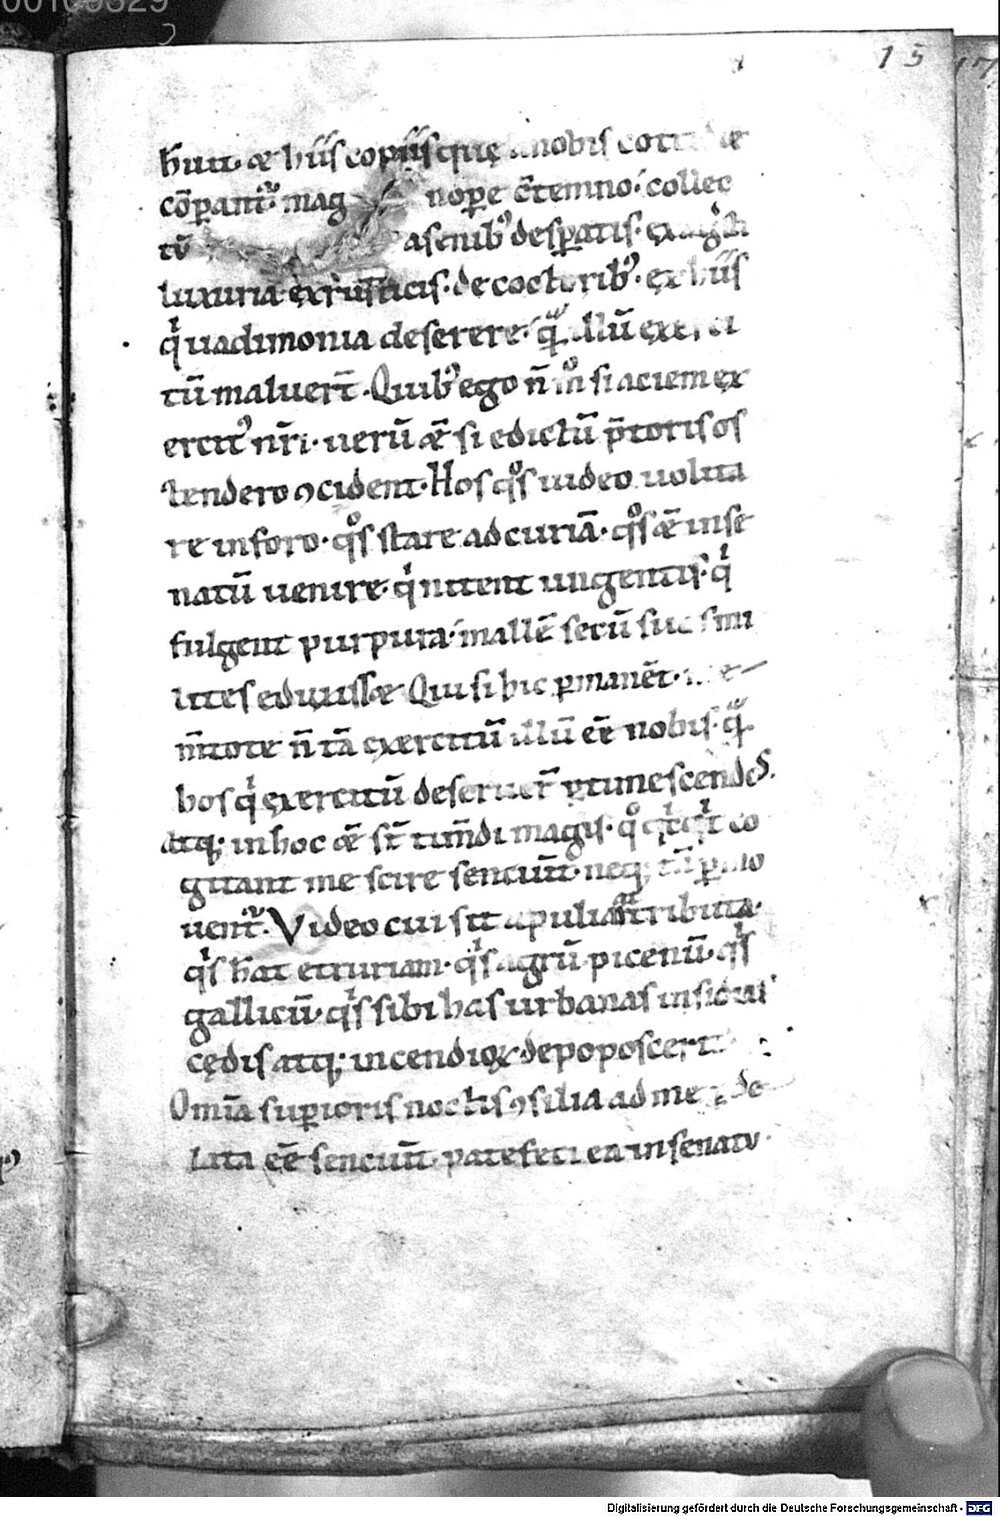 00109529
15 17
hūit· & hiis copiis quę a nobis cott &
cōparant᷑· mag nope ꝯtemno· collec
tū a senib᷒ despatis· ex ag
luxuria ex rusticis· decoctorib᷒· ex hiis
qͥ uadimonia deserere· qͣ illū exerci
tū maluert̄· Quib᷒ ego n̄ m̊ si aciem ex
ercit᷒ nr̄i· uerū &̄ si edictū p̄toris os
tendero ꝯcident· Hos qͦs uideo uolita
re in foro· qͦs stare ad curiā· qͦs &̄ in se
natū uenire· qͥ nitent ungentis· qͥ
fulgent purpura· mallē secū suos mi
lites eduxiss& Qui si hic pmanēt·
m̄tote n̄ tā exercitū illū ēē nobis· qͣ
hos qͥ exercitū deseruer̄ ptimescendos·
Atq; in hoc &̄ st̄ tim̄di magis· qͦ qͥd co
gitant me scire senciūt· neq; tn̄ pmo
uent᷑· Video cui sit apulia attributa·
qͥs hāt etruriam· qͥs agrū picenū· qͥs
gallicū· qͥs sibi has urbanas insidias
cędis atq; incendioꝝ depoposcerit
Om̄ia supioris noctis ꝯsilia ad me de
lata ēē senciūt· patefeci ea in senatu·
Digitalisierung gefördert durch die Deutsche Forschungsgemeinschaft - DFG